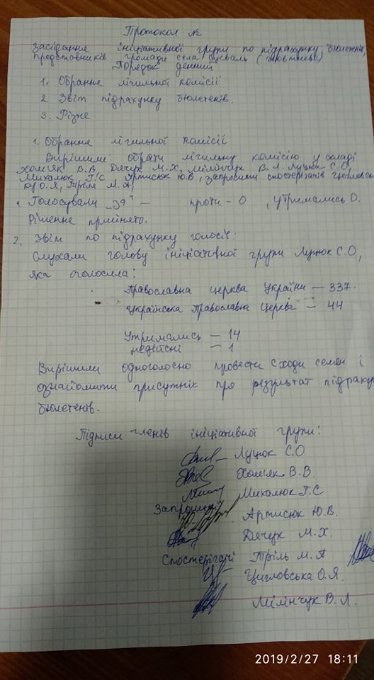 Протокол №
засідання ініціативної групи по підрахунку бюлетенів,
представників громади села
Порядок денний
1. Обрання лічильної комісії
2. Звіт підрахунку бюлетенів.
3. Різне
1. Обрання лічильної комісії
Вирішили обрати лічильну комісію у складі
Хомяк В.В Дячук М.Х, Мілінчук В.Л Луцюк С.О,
Михалюк Г.С Артисюк Ю.В, запросити спостерігачів
О.Я, Тріль М.А
Голосували "За" — проти - 0, утримались 0.
Рішення прийнято.
2. Звіт по підрахунку голосів.
Слухали голову ініціативної групи Луцюк С.О,
яка оголосила:
Православна церква України — 337.
Українська Православна Церква — 44
Утримались — 14
недійсні — 1
Вирішили одноголосно провести сходи селян і
ознайомити присутніх про результат
бюлетенів.
Підписи членів ініціативної групи:
Луцюк С.О
Хомяк В.В
Михалюк Г.С
Артисюк Ю.В.
Дячук М.Х.
Спостерігачі Тріль М.А
Цигловська О.Я.
Мілінчук В.Л.
2019/2/27 18:11